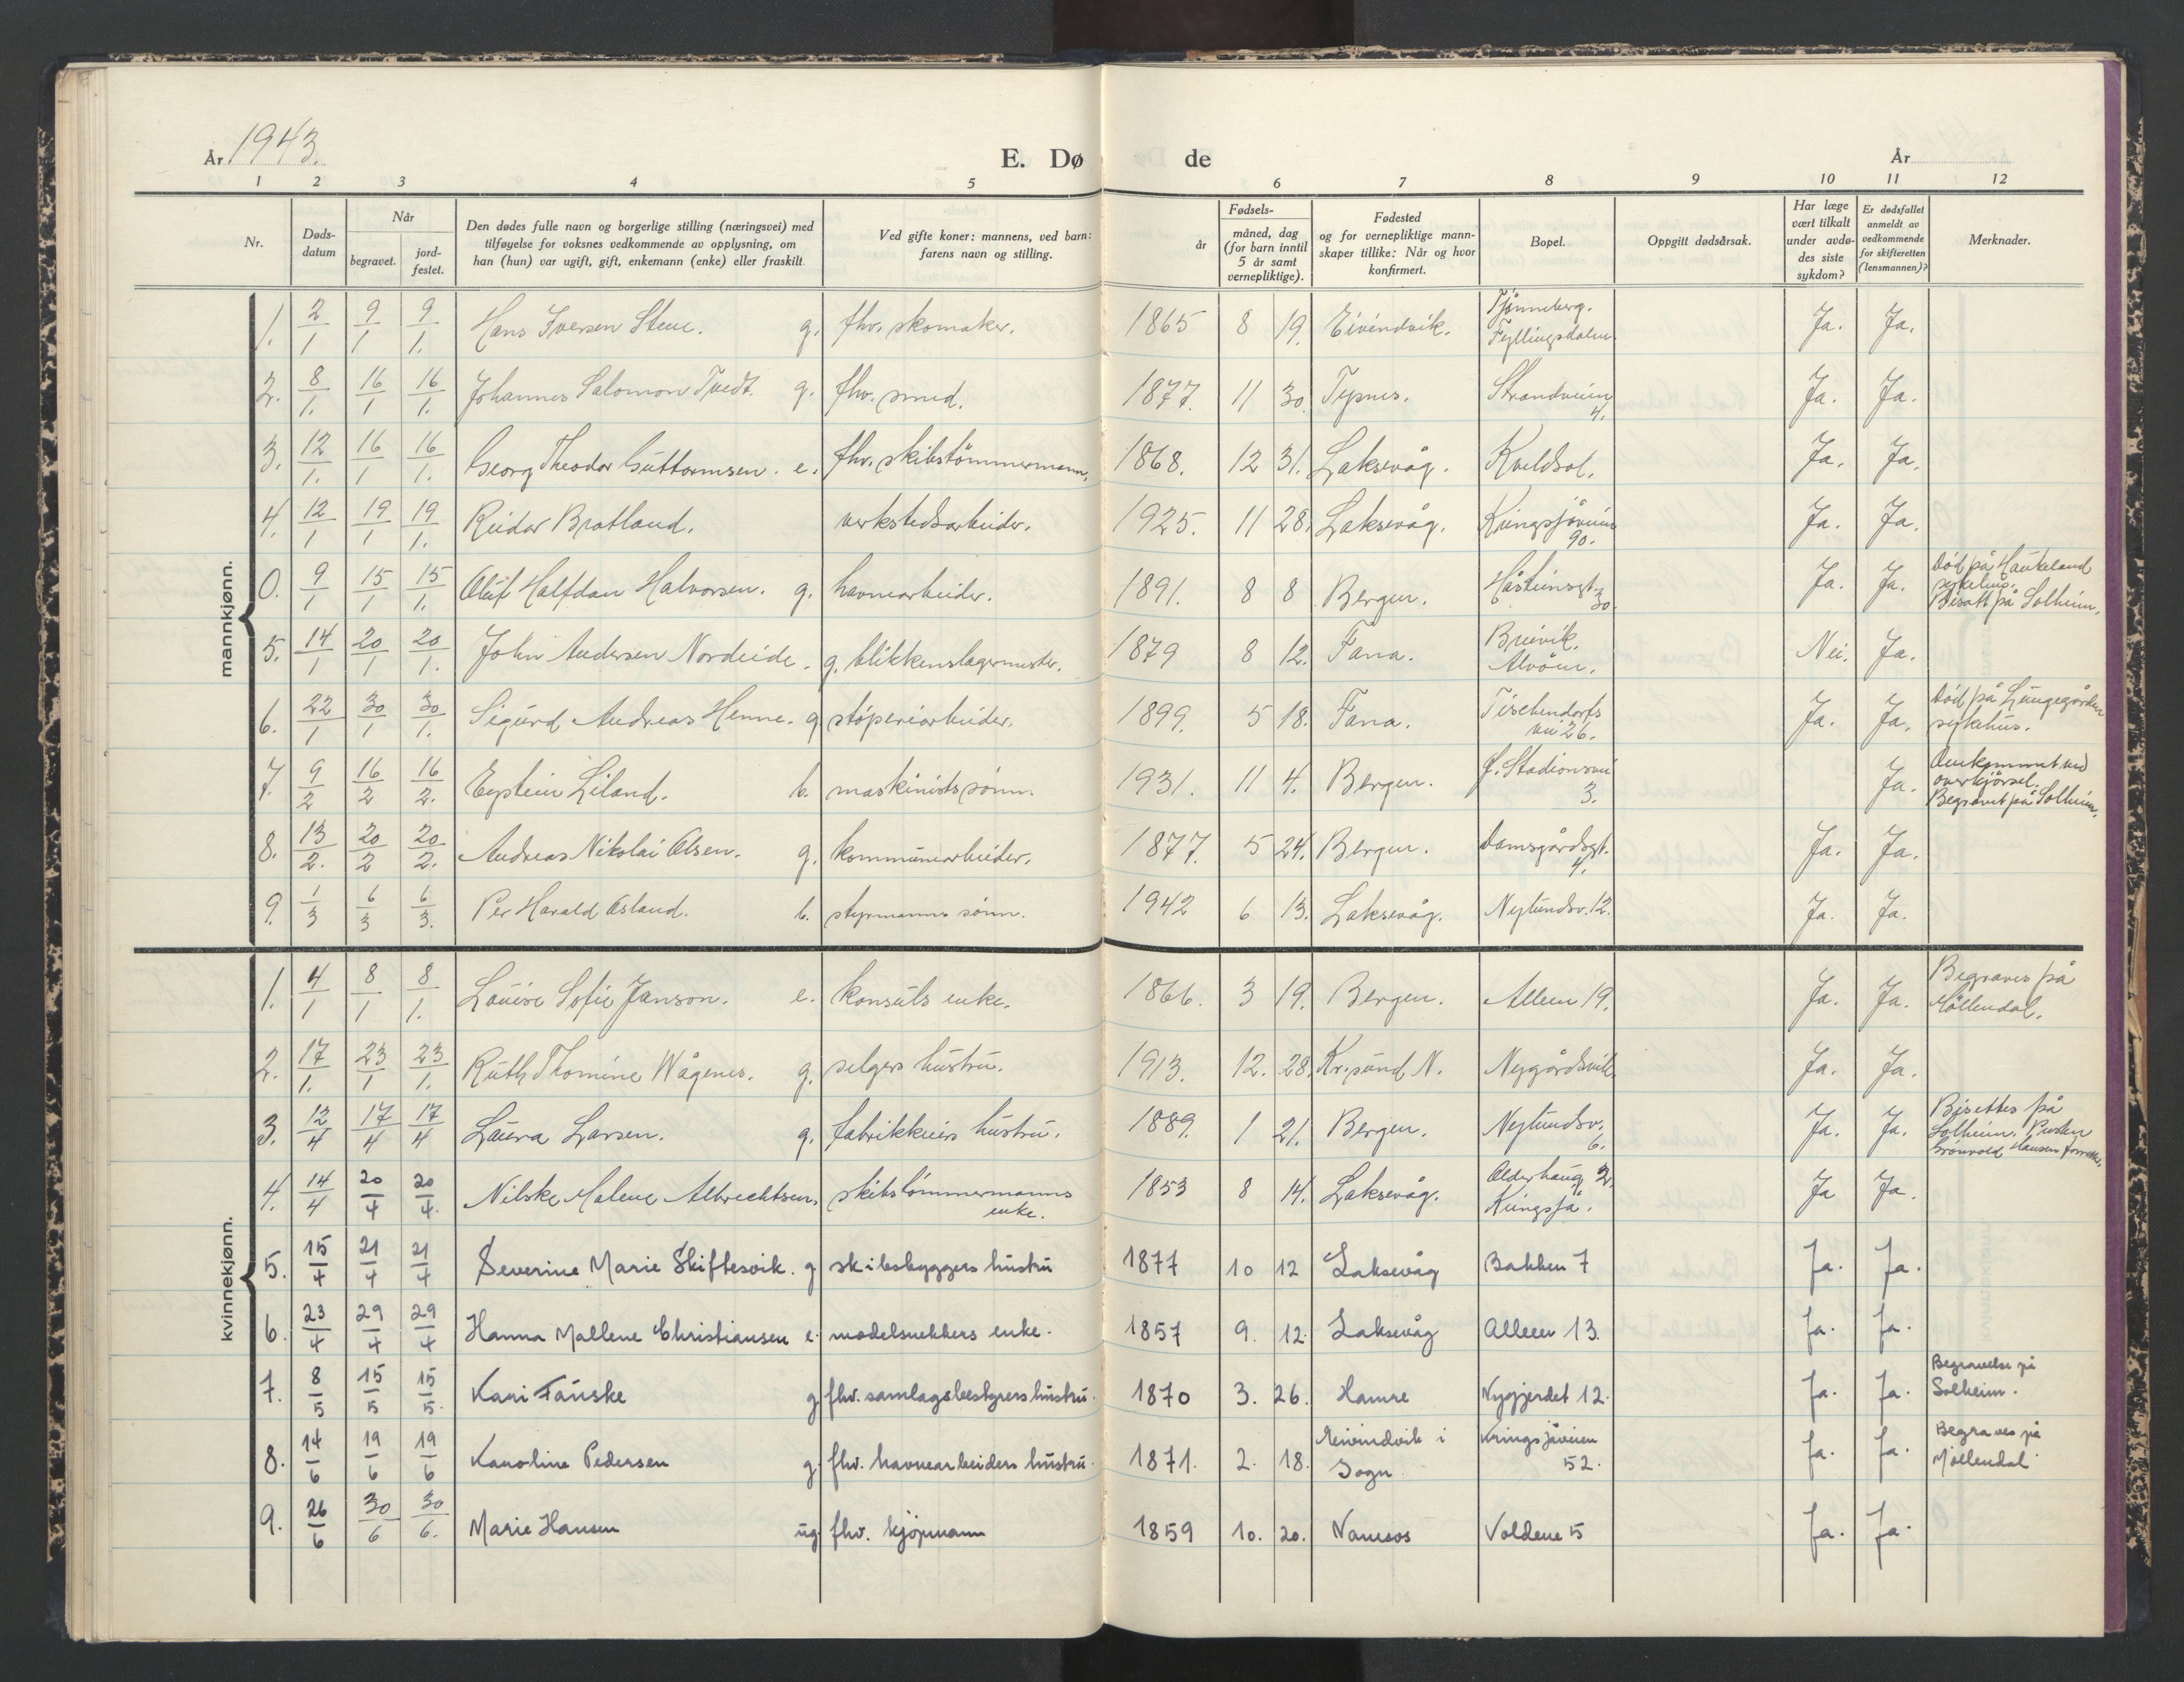 År 1943.
E. Dø de
År
1 2 3 4 5 6 7 8 9 10 11 12
Nr.
Døds-
datum
Når
begravet.
jord-
festet.
Den dødes fulle navn og borgerlige stilling (næringsvei) med
tilføyelse for voksnes vedkommende av opplysning, om
han (hun) var ugift, gift, enkemann (enke) eller fraskilt.
Ved gifte koner: mannens, ved barn:
farens navn og stilling.
Fødsels-
år
måned, dag
(for barn inntil
5 år samt
vernepliktige).
Fødested
og for vernepliktige mann-
skaper tillike: Når og hvor
konfirmert.
Bopel.
Oppgitt dødsårsak.
Har læge
vært tilkalt
under avdø-
des siste
sykdom?
Er dødsfallet
anmeldt av
vedkommende
for skifteretten
(lensmannen)?
Merknader.
mannkjønn.
1. 2/1 9/1 9/1. Hans Iversen Stene. g. fhv. skomaker. 1865 8 19. Eivindvik. Tjønneberg.
Fyllingsdalen. Ja. Ja.
2. 8/1. 16/1 16/1. Johannes Salomon Tvedt. g. fhv. smed. 1877. 11 30. Tysnes. Strandveien
4. Ja. Ja.
3. 12/1. 16/1 16/1. Georg Theodor Guttormsen. e. fhv. skibstömmermann. 1868. 12 31. Laksevåg. Kveldsol. Ja. Ja.
4. 12/1 19/1 19/1. Reidar Bratland. verkstedsarbeider. 1925. 11 28. Laksevåg. Kringsjåveien
90. Ja. Ja.
0. 9/1 15/1 15/1. Oluf Halfdan Halvorsen. g. havnearbeider. 1891. 8 8 Bergen. Håsteinsgt.
30. Ja. Ja. Död på Haukeland
sykehus.
Bisatt på Solheim.
5. 14/1 20/1 20/1. John Andersen Nordeide. g. blikkenslagermester. 1879 8 12. Fana. Breivik.
Alvöen. Nei. Ja.
6. 22/1 30/1 30/1. Sigurd Andreas Henne. g. stöperiarbeider. 1899. 5 18. Fana. Tischendorfs
vei 26. Ja. Ja. Död på Lungegården
sykehus.
7. 9/2 16/2 16/2. Eystein Liland. b. maskinists sönn. 1931. 11 4. Bergen. f. Stadionsvei
3. Ja. Omkommet ved
overkjörsel.
Begravet på Solheim.
8. 13/2. 20/2 20/2. Andreas Nikolai Olsen. g. kommunearbeider. 1877. 5 24. Bergen. Damsgårdsgt.
4. Ja. Ja.
9. 1/3 6/3 6/3. Per Harald Åsland. b. styrmanns sönn. 1942 6 13. Laksevåg. Nylundsv. 12. Ja. Ja.
kvinnekjønn.
1. 4/1 8/1 8/1. Louise Sofie Janson. e. konsuls enke. 1866. 3 19. Bergen. Alleen 19. Ja. Ja. Begraves på
Möllendal.
2. 17/1. 23/1 23/1. Ruth Thomine Wågenes. g. selgers hustru. 1913. 12. 28. Kr.sund N. Nygårdsvik. Ja. Ja.
3. 12/4 17/4 17/4 Laura Larsen. g. fabrikkeiers hustru. 1889. 1 21. Bergen. Nylundsv.
6. Ja. Ja. Bisettes på
Solheim. Presten
Grönvold Hansen forretter.
4. 14/4 20/4 20/4. Nilske Malene Albrechtsen. skibstömmermanns
enke. 1853 8 14. Laksevåg. Olderhaug 2.
Kringsjå. Ja Ja.
5. 15/4 21/4 21/4 Severine Marie Skiftesvik. g. skibsbyggers hustru 1877 10 12 Laksevåg Bakken 7 Ja. Ja.
6. 23/4 29/4 29/4 Hanna Mallene Christiansen e. modelsnekkers enke. 1857 9. 12. Laksevåg Alleen 13. Ja. Ja.
7. 8/5 15/5 15/5. Kari Fauske g. fhv. samlagsbestyrers hustru. 1870 3. 26. Hamre Nygjerdet 12. Ja. Ja. Begravelse på
Solheim.
8. 14/6 19/6 19/6 Karoline Pedersen g. fhv. havnearbeiders hustru. 1871. 2. 18. Eivindvik i
Sogn Kringsjåveien
52. Ja. Ja. Begraves på
Möllendal
9. 26/6 30/6 30/6. Marie Hansen ug. fhv. kjöpmann 1859 10. 20. Namsos Voldene 5 Ja. Ja.